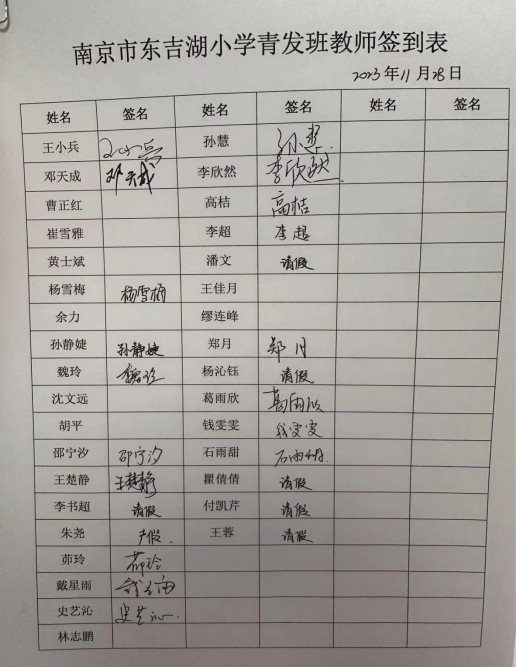 南京市东吉湖小学青发班教师签到表
2023年11月28日
姓名 签名 姓名 签名 姓名 签名
王小兵 王小兵 孙慧 孙慧
邓天成 邓天成 李欣然 李欣然
曹正红 高桔 高桔
崔雪雅 李超 李超
黄士斌 潘文 请假
杨雪梅 杨雪梅 王佳月
余力 缪连峰
孙静婕 孙静婕 郑月 郑月
魏玲 魏玲 杨沁钰 请假
沈文远 葛雨欣 葛雨欣
胡平 钱雯雯 钱雯雯
邵宁汐 邵宁汐 石雨甜 石雨甜
王楚静 王楚静 瞿倩倩 请假
李书超 请假 付凯芹 请假
朱尧 产假 王蓉 请假
茆玲 茆玲
戴星雨 戴星雨
史艺沁 史艺沁
林志鹏